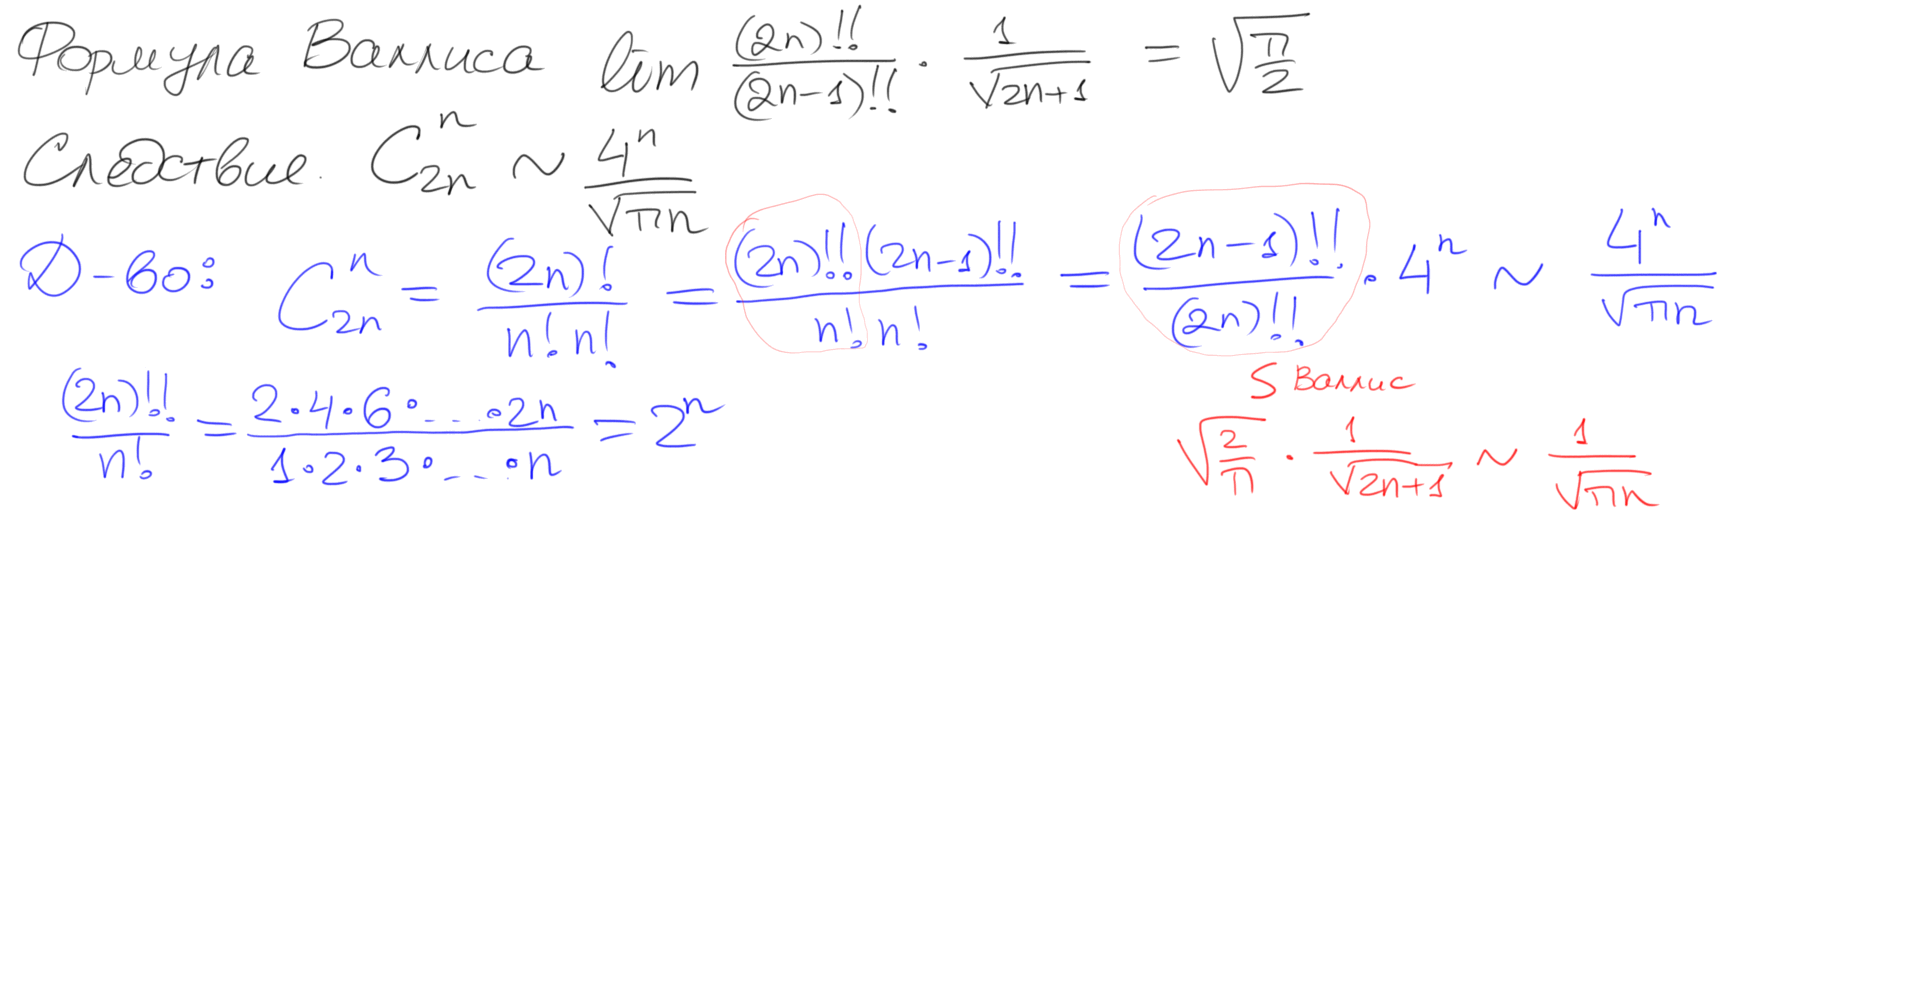 Формула Валлиса lim (2n)!!/(2n-1)!! · 1/√(2n+1) = √(π/2)
Следствие. C_{2n}^n ~ 4^n/√(πn)
Д-во: C_{2n}^n = (2n)!/(n! n!) = (2n)!!(2n-1)!!/(n! n!) = (2n-1)!!/(2n)!! · 4^n ~ 4^n/√(πn)
S Валлис
(2n)!!/n! = (2·4·6·...·2n)/(1·2·3·...·n) = 2^n
√(2/π) · 1/√(2n+1) ~ 1/√(πn)